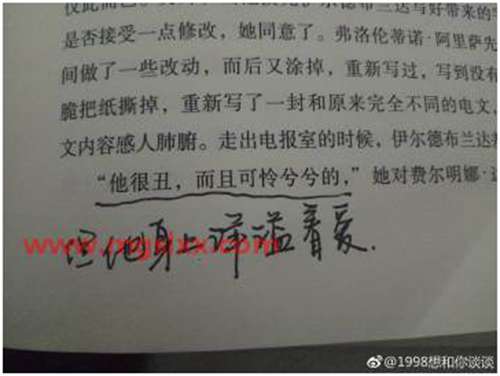 是否接受一点修改，她同意了。弗洛伦蒂诺·阿里萨先
间做了一些改动，而后又涂掉，重新写过，写到没有
脆把纸撕掉，重新写了一封和原来完全不同的电文
文内容感人肺腑。走出电报室的时候，伊尔德布兰达
“他很丑，而且可怜兮兮的，”她对费尔明娜·达
但他身上洋溢着爱.
@1998想和你谈谈